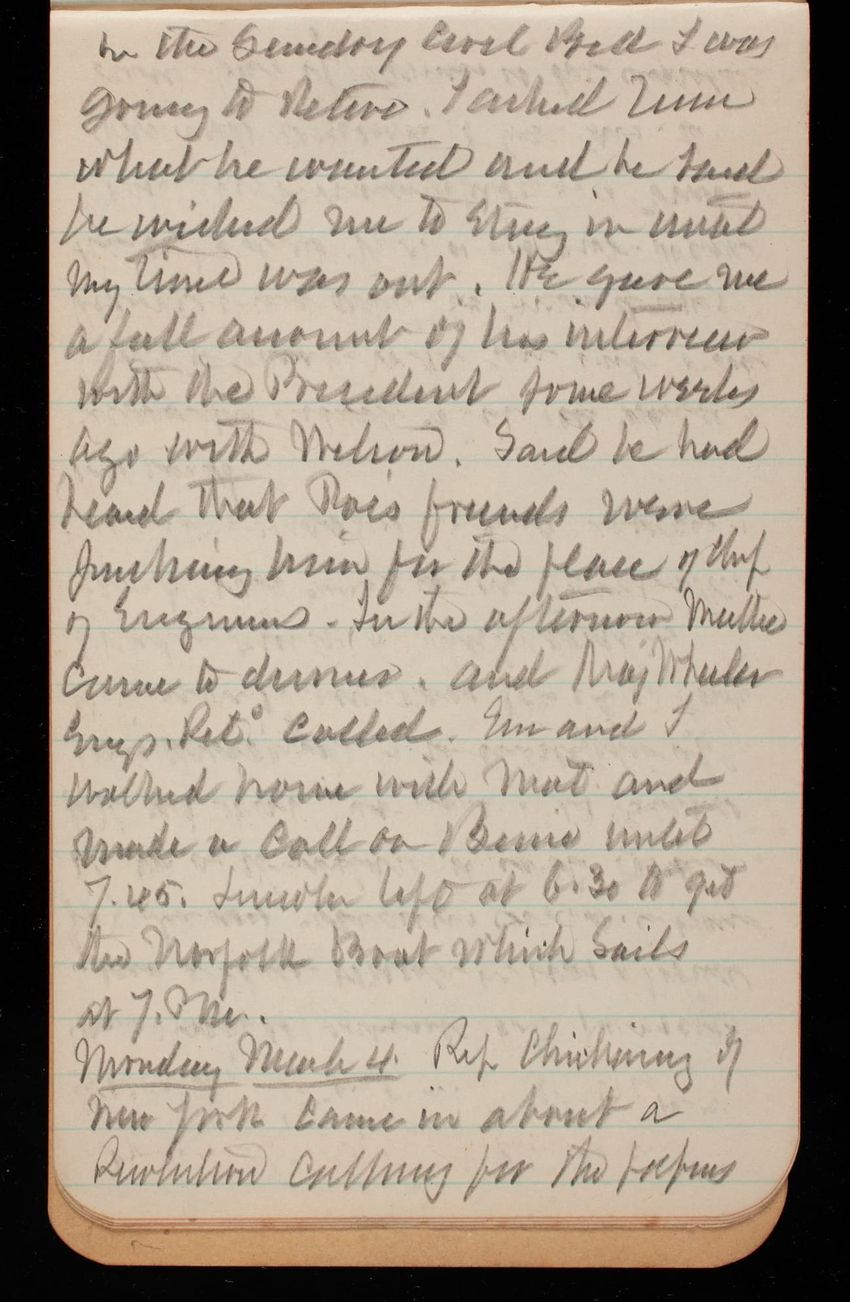 in the Sundry Civil Bill I was
going to Retire. I asked him
what he wanted and he said
he wished me to stay in until
my time was out. He gave me
a full account of his interview
with the President some weeks
ago with Wilson. Said he had
heard that Poe's friends were
pushing him for the place of Chf
of Engineers. In the afternoon
came to dinner. and Maj Wheeler
Engs. Retd called. Em and I
walked home with Mat and
made a Call on until
7.45. Lincoln left at 6.30 to get
the Norfolk Boat which Sails
at 7. P.M.
Monday March 4. Rep Chickering of
New York came in about a
Resolution calling for the papers